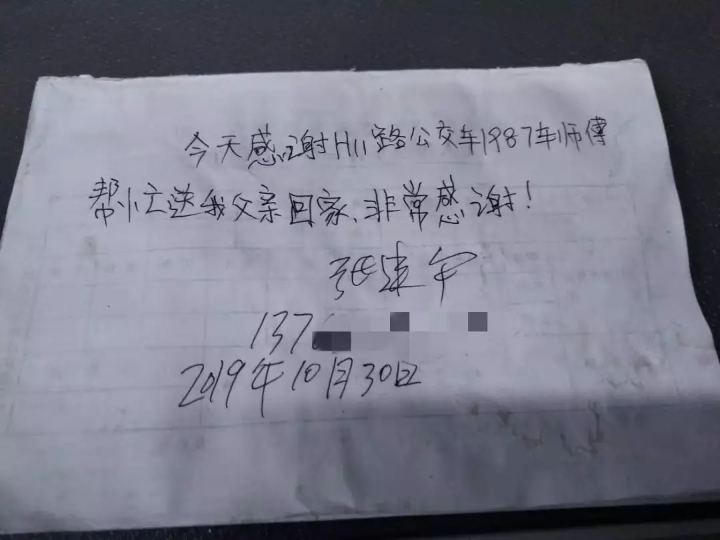 今天感谢H11路公交车1987车师傅
帮忙送我父亲回家、非常感谢!
张建军
137
2019年10月30日